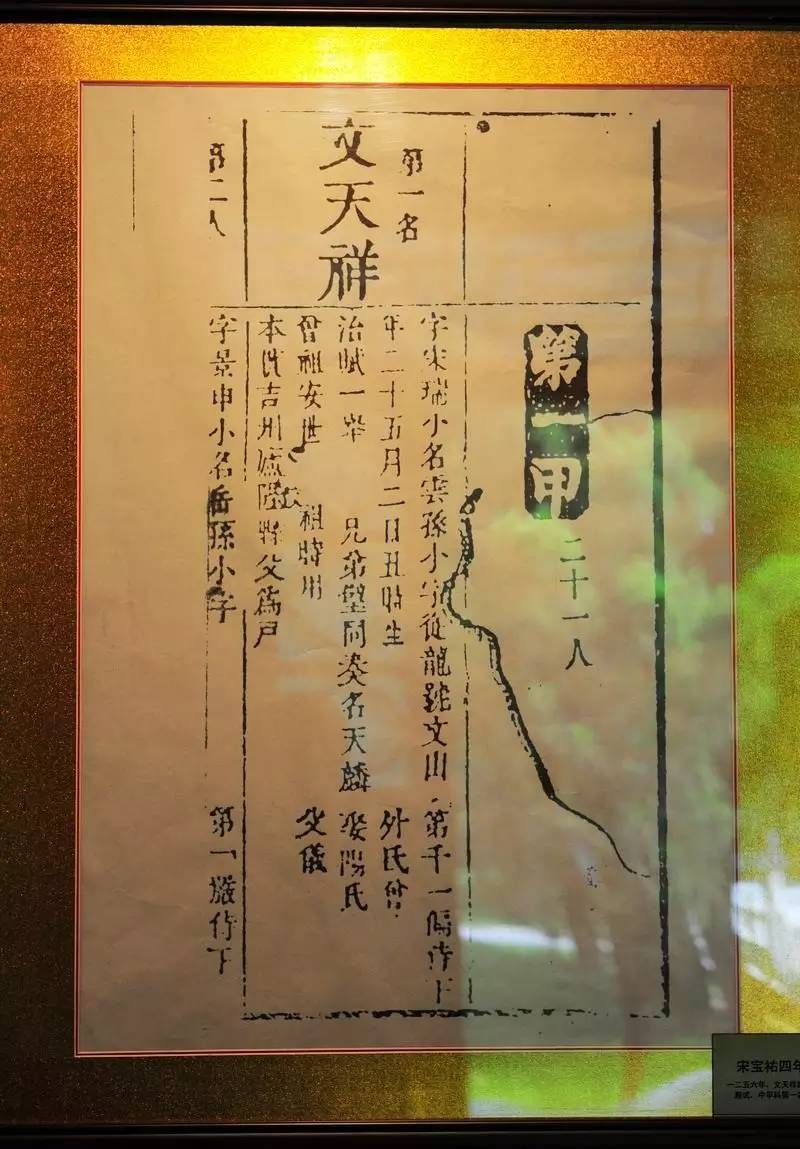 第一甲 二十一人
第一名
文天祥
字宋瑞小名雲孫小字從龍號文山 第千一偏侍下
年二十五月二日丑時生 外氏曾
治賦一舉 兄弟璧同奏名天麟 娶陽氏
曾祖安世 祖時用 父儀
本貫吉州廬陵縣父爲戶
第二人
字景申小名岳孫小字 第一嚴侍下
宋宝祐四年
一二五六年，文天祥
殿试，中甲科第一